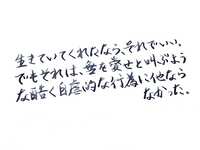 生きていてくれたなら、それでいい。
でもそれは、無を愛せと叫ぶよう
な酷く自虐的な行為に他なら
なかった。